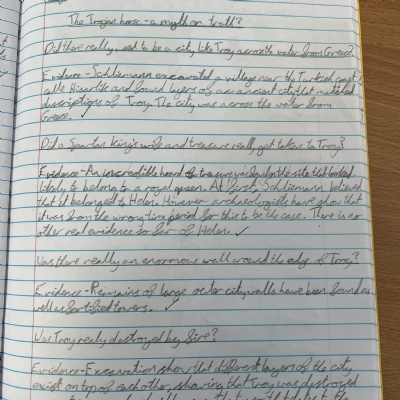 The Trojan horse - a myth or truth?
Did there really used to be a city like Troy across the water from Greece?
Evidence - Schliemann excavated a village near the Turkish coast
calle Hisarlik and found layers of an ancient city that matched
descriptions of Troy. The city was across the water from
Greece.
Did a Spartan king's wife and treasure really get taken to Troy?
Evidence - An incredible hoard of treasure was found at the site that looked
likely to belong to a royal queen. At first, Schliemann believed
that it belonged to Helen. However archaeologists have show that
it was from the wrong time period for this to be the case. There is no
other real evidence so far of Helen.
Was there really an enormous wall around the edg of Troy?
Evidence - Remains of large outer city walls have been found as
well as fortified towers.
Was Troy really destroyed by fire?
Evidence - Excavation show that different layers of the city
exist on top of each other, showing that Troy was destroyed